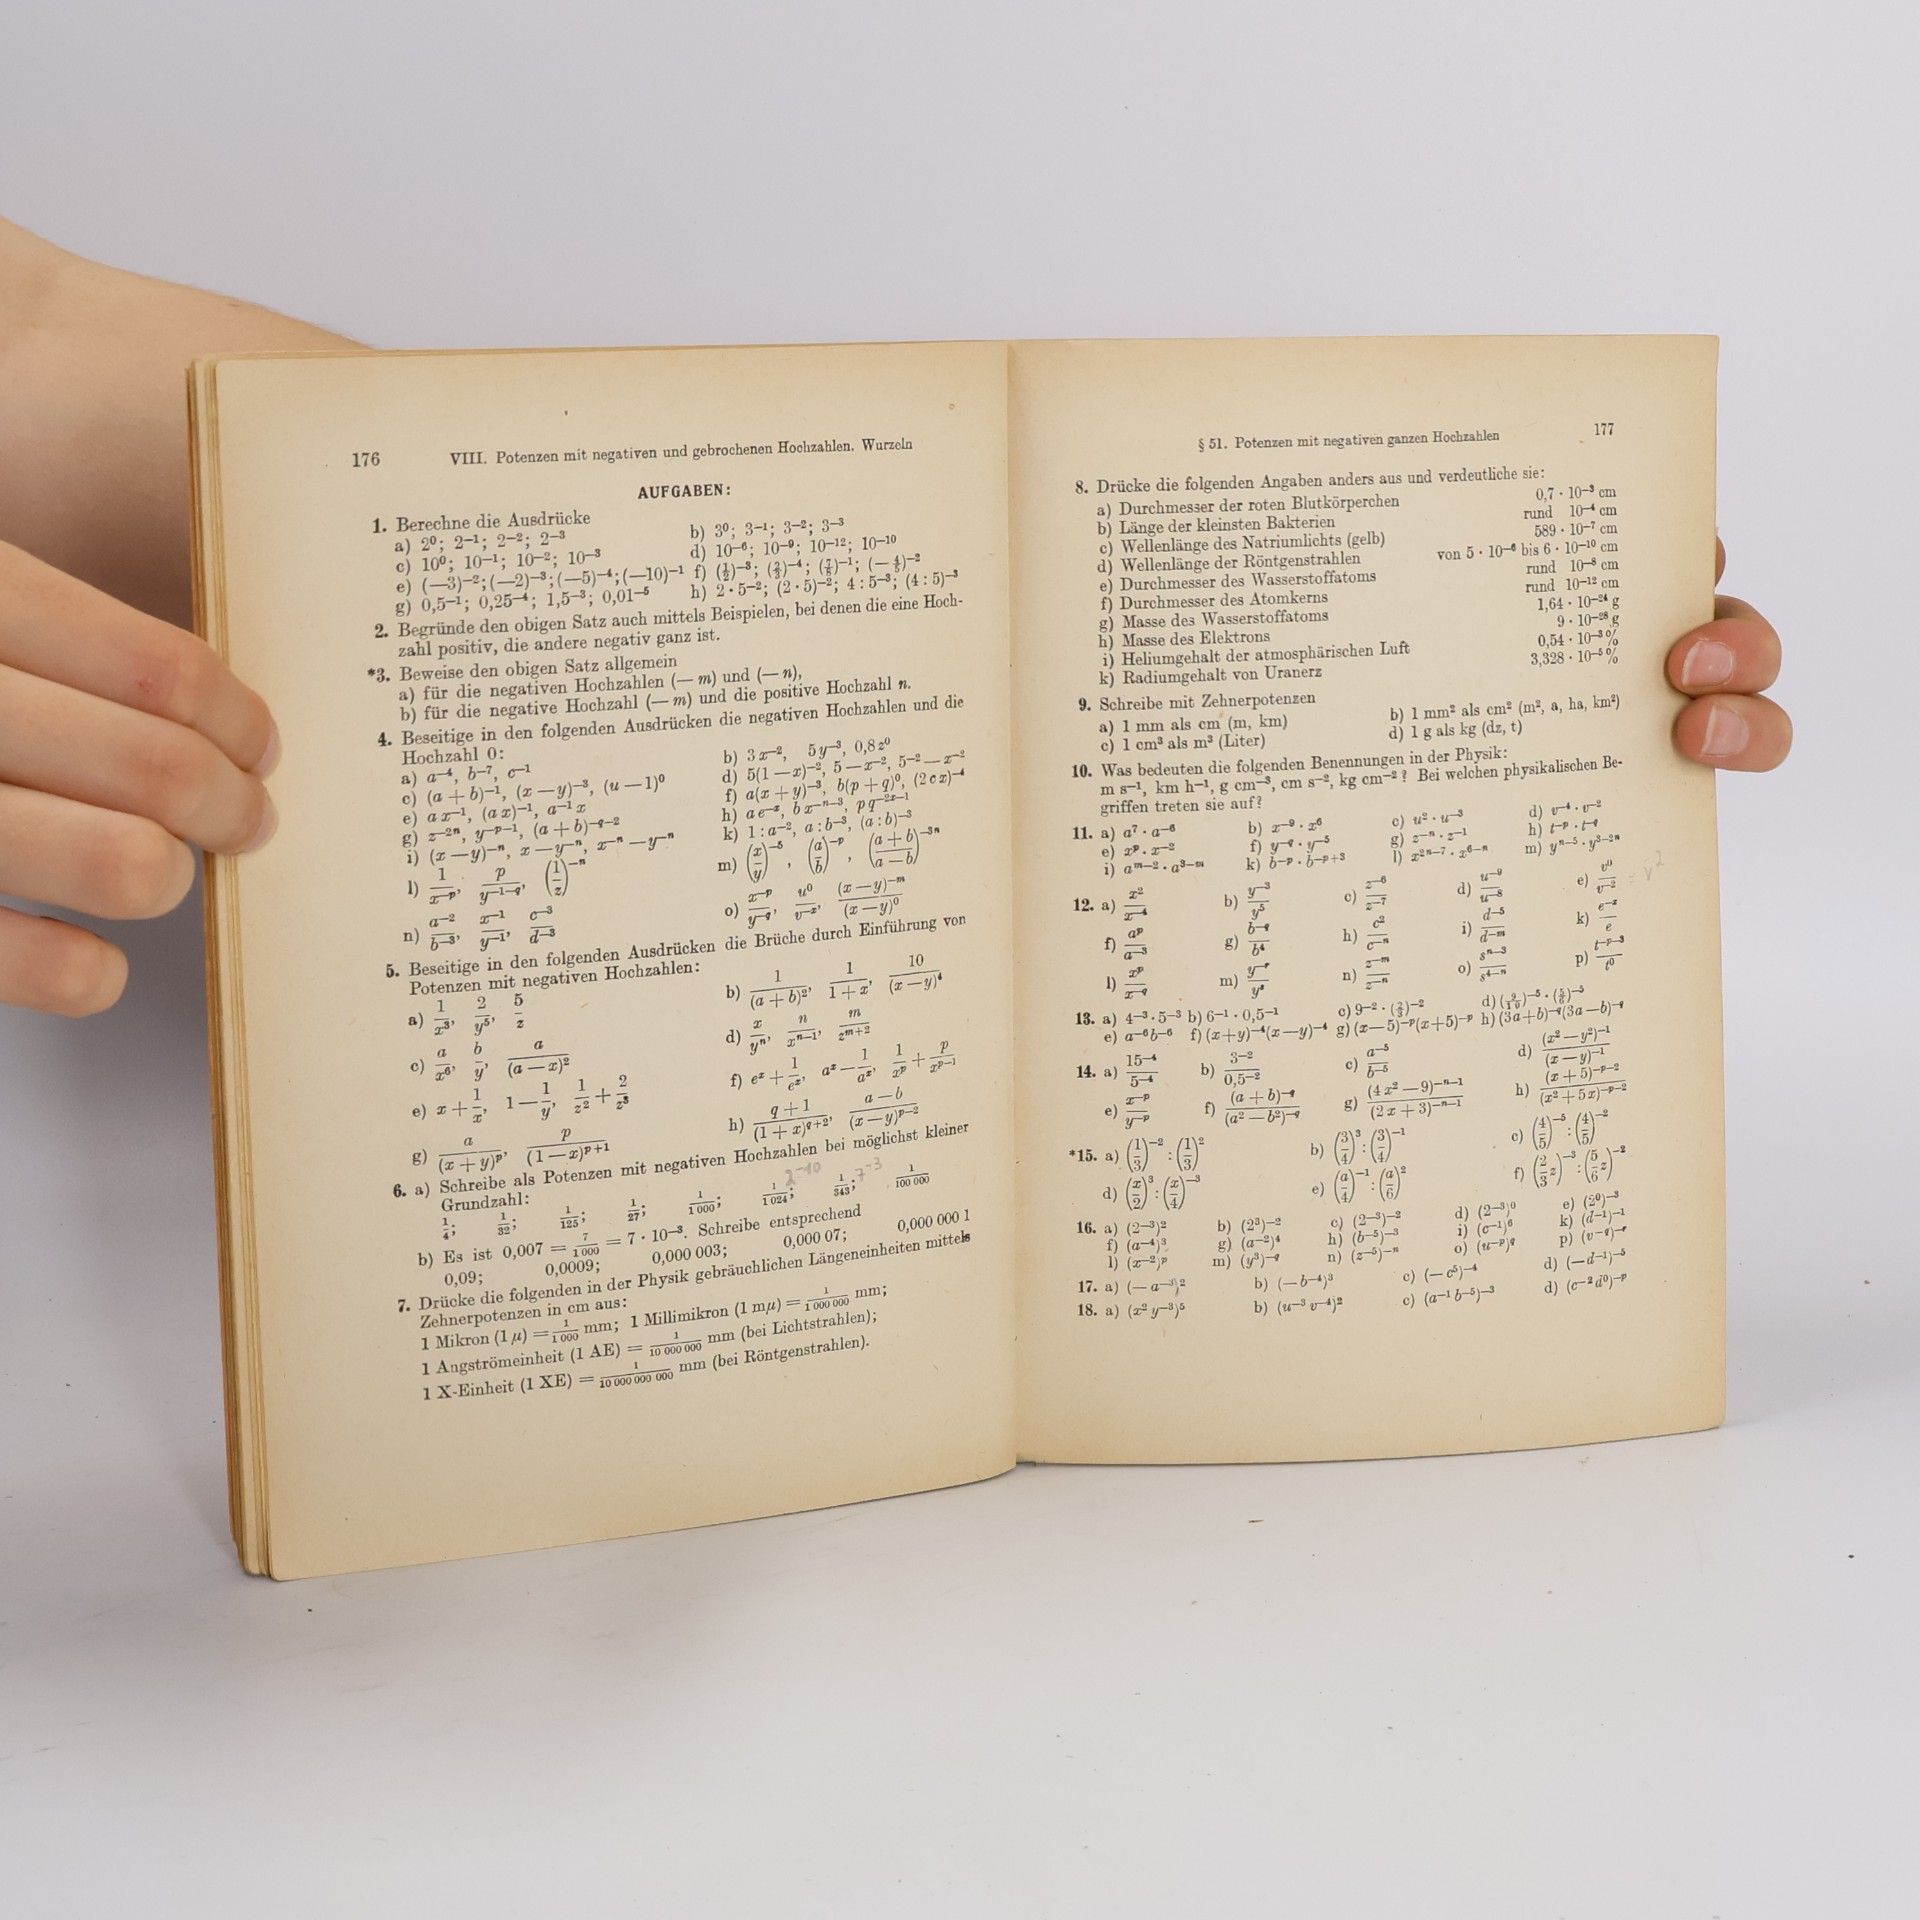 176 VIII. Potenzen mit negativen und gebrochenen Hochzahlen. Wurzeln
AUFGABEN:
1. Berechne die Ausdrücke
a) 2⁰; 2⁻¹; 2⁻²; 2⁻³ b) 3⁰; 3⁻¹; 3⁻²; 3⁻³
c) 10⁰; 10⁻¹; 10⁻²; 10⁻³ d) 10⁻⁶; 10⁻⁹; 10⁻¹²; 10⁻¹⁰
e) (—3)⁻²; (—2)⁻³; (—5)⁻⁴; (—10)⁻¹ f) (1/2)⁻³; (2/3)⁻⁴; (7/8)⁻¹;
g) 0,5⁻¹; 0,25⁻⁴; 1,5⁻³; 0,01⁻⁵ h) 2 · 5⁻²; (2 · 5)⁻²; 4 : 5⁻³; (4 : 5)⁻³
2. Begründe den obigen Satz auch mittels Beispielen, bei denen die eine Hoch-
zahl positiv, die andere negativ ganz ist.
*3. Beweise den obigen Satz allgemein
a) für die negativen Hochzahlen (— m) und (— n),
b) für die negative Hochzahl (— m) und die positive Hochzahl n.
4. Beseitige in den folgenden Ausdrücken die negativen Hochzahlen und die
Hochzahl 0:
a) a⁻⁴, b⁻⁷, c⁻¹ b) 3x⁻², 5y⁻³, 0,8z⁰
c) (a + b)⁻¹, (x — y)⁻³, (u — 1)⁰ d) 5(1 — x)⁻², 5 — x⁻², 5⁻² — x⁻²
e) ax⁻¹, (ax)⁻¹, a⁻¹x f) a(x + y)⁻³, b(p + q)⁰, (2cx)⁻⁴
g) z⁻²ⁿ, y^(—p—1), (a + b)^(—q—2) h) ae⁻ˣ, bx^(—n—3), pq^(—2x—1)
i) (x — y)⁻ⁿ, x — y⁻ⁿ, x⁻ⁿ — y⁻ⁿ k) 1 : a⁻², a : b⁻³, (a : b)⁻³
l) 1/x^(—p), p/y^(—1—q), (1/z)⁻ⁿ m) (x/y)⁻⁵, (a/b)^(—p), ((a + b)/(a — b))^(—3n)
n) a⁻²/b⁻³, x⁻¹/y⁻¹, c⁻³/d⁻³ o) x^(—p)/y^(—q), u⁰/v^(—x), (x — y)^(—m)/(x — y)⁰
5. Beseitige in den folgenden Ausdrücken die Brüche durch Einführung von
Potenzen mit negativen Hochzahlen:
a) 1/x³, 2/y⁵, 5/z b) 1/(a + b)², 1/(1 + x), 10/(x — y)⁴
c) a/x⁶, b/y, a/(a — x)² d) x/yⁿ, n/x^(n—1), m/z^(m+2)
e) x + 1/x, 1 — 1/y, 1/z² + 2/z³ f) eˣ + 1/eˣ, aˣ — 1/aˣ, 1/x^p + p/x^(p—1)
g) a/(x + y)^p, p/(1 — x)^(p+1) h) (q + 1)/(1 + x)^(q+2), (a — b)/(x — y)^(p—2)
6. a) Schreibe als Potenzen mit negativen Hochzahlen bei möglichst kleiner
Grundzahl: 2⁻¹⁰ 7⁻³
1/4; 1/32; 1/125; 1/27; 1/1000; 1/1024; 1/343; 1/100 000
b) Es ist 0,007 = 7/1000 = 7 · 10⁻³. Schreibe entsprechend
0,09; 0,0009; 0,000 003; 0,000 07; 0,000 000 1
7. Drücke die folgenden in der Physik gebräuchlichen Längeneinheiten mittels
Zehnerpotenzen in cm aus:
1 Mikron (1 μ) = 1/1000 mm; 1 Millimikron (1 mμ) = 1/1 000 000 mm;
1 Angströmeinheit (1 AE) = 1/10 000 000 mm (bei Lichtstrahlen);
1 X-Einheit (1 XE) = 1/10 000 000 000 mm (bei Röntgenstrahlen).
§ 51. Potenzen mit negativen ganzen Hochzahlen 177
8. Drücke die folgenden Angaben anders aus und verdeutliche sie:
a) Durchmesser der roten Blutkörperchen 0,7 · 10⁻³ cm
b) Länge der kleinsten Bakterien rund 10⁻⁴ cm
c) Wellenlänge des Natriumlichts (gelb) 589 · 10⁻⁷ cm
d) Wellenlänge der Röntgenstrahlen von 5 · 10⁻⁶ bis 6 · 10⁻¹⁰ cm
e) Durchmesser des Wasserstoffatoms rund 10⁻⁸ cm
f) Durchmesser des Atomkerns rund 10⁻¹² cm
g) Masse des Wasserstoffatoms 1,64 · 10⁻²⁴ g
h) Masse des Elektrons 9 · 10⁻²⁸ g
i) Heliumgehalt der atmosphärischen Luft 0,54 · 10⁻³%
k) Radiumgehalt von Uranerz 3,328 · 10⁻⁵%
9. Schreibe mit Zehnerpotenzen
a) 1 mm als cm (m, km) b) 1 mm² als cm² (m², a, ha, km²)
c) 1 cm³ als m³ (Liter) d) 1 g als kg (dz, t)
10. Was bedeuten die folgenden Benennungen in der Physik:
m s⁻¹, km h⁻¹, g cm⁻³, cm s⁻², kg cm⁻²? Bei welchen physikalischen Be-
griffen treten sie auf?
11. a) a⁷ · a⁻⁶ b) x⁻⁹ · x⁶ c) u² · u⁻³ d) v⁻⁴ · v⁻²
e) x^p · x⁻² f) y^(—q) · y⁻⁵ g) z⁻ⁿ · z⁻¹ h) t^(—p) · t^(—q)
i) a^(m—2) · a^(3—m) k) b^(—p) · b^(—p+3) l) x^(2n—7) · x^(6—n) m) y^(n—5) · y^(3—2n)
12. a) x²/x⁻⁴ b) y⁻³/y⁵ c) z⁻⁶/z⁻⁷ d) u⁻⁹/u⁻⁸ e) v⁰/v⁻² = v²
f) a^p/a⁻³ g) b^(—q)/b⁴ h) c²/c⁻ⁿ i) d⁻⁵/d^(—m) k) e⁻ˣ/e
l) x^p/x^(—q) m) n) z^(—m)/z⁻ⁿ o) s^(n—3)/s^(4—n) p) t^(—p—3)/t⁰
13. a) 4⁻³ · 5⁻³ b) 6⁻¹ · 0,5⁻¹ c) 9⁻² · (2/3)⁻² d)
e) a⁻⁶b⁻⁶ f) (x+y)⁻⁴(x—y)⁻⁴ g) (x—5)^(—p)(x+5)^(—p) h) (3a+b)^(—q)(3a—b)^(—q)
14. a) 15⁻⁴/5⁻⁴ b) 3⁻²/0,5⁻² c) a⁻⁵/b⁻⁵ d) (x² — y²)⁻¹/(x — y)⁻¹
e) x^(—p)/y^(—p) f) (a + b)^(—q)/(a² — b²)^(—q) g) (4x² — 9)^(—n—1)/(2x + 3)^(—n—1) h) (x + 5)^(—p—2)/(x² + 5x)^(—p—2)
*15. a) (1/3)⁻² : (1/3)² b) (3/4)³ : (3/4)⁻¹ c) (4/5)⁻⁵ : (4/5)⁻²
d) (x/2)³ : (x/4)⁻³ e) (a/4)⁻¹ : (a/6)² f) (2/3 z)⁻³ : (5/6 z)⁻²
16. a) (2⁻³)² b) (2³)⁻² c) (2⁻³)⁻² d) (2⁻³)⁰ e) (2⁰)⁻³
f) (a⁻⁴)³ g) (a⁻²)⁴ h) (b⁻⁵)⁻³ i) (c⁻¹)⁶ k) (d⁻¹)⁻¹
l) (x⁻²)^p m) (y³)^(—q) n) (z⁻⁵)⁻ⁿ o) (u^(—p))^q p) (v^(—q))^(—r)
17. a) (— a⁻³)² b) (— b⁻⁴)³ c) (— c⁵)⁻⁴ d) (— d⁻¹)⁻⁵
18. a) (x² y⁻³)⁵ b) (u⁻³ v⁻⁴)² c) (a⁻¹ b⁻⁵)⁻³ d) (c⁻² d⁰)^(—p)